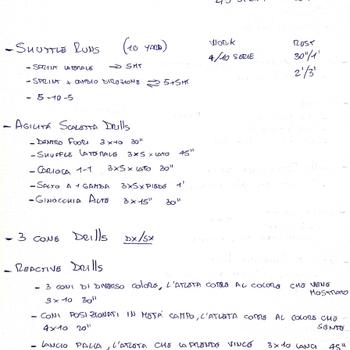 - SHUTTLE RUNS (10 YARD) WORK REST
4/10 SERIE 30"/1'
- SPRINT LATERALE ⇒ 5MT
2'/3'
- SPRINT + CAMBIO DIREZIONE ⇌ 5+5MT
- 5-10-5
- AGILITÀ SCALETTA DRILLS
- DENTRO FUORI 3x10 30"
- SHUFFLE LATERALE 3x5xLATO 45"
- CARIOCA 1-1 3x5xLATO 30"
- SALTO A 1 GAMBA 3x5xPIEDE 1'
- GINOCCHIA ALTE 3x15" 30"
- 3 CONE DRILLS DX/SX
- REACTIVE DRILLS
- 3 CONI DI DIVERSO COLORE, L'ATLETA CORRE AL COLORE CHE VIENE
MOSTRATO
3x10 30"
- CONI POSIZIONATI IN METÀ CAMPO, L'ATLETA CORRE AL COLORE CHE
SENTE
4x10 20"
- LANCIO PALLA, L'ATLETA CHE LA PRENDE VINCE 3x10 LANCI 45"